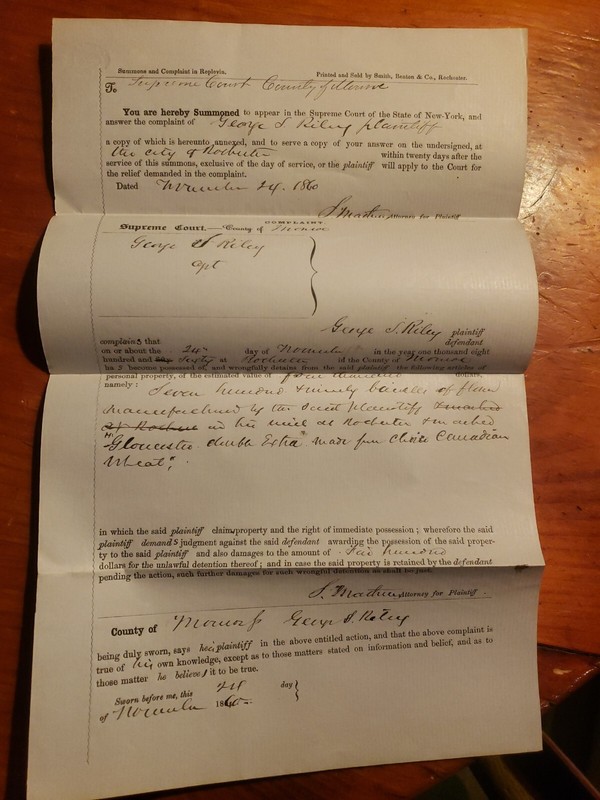 Summons and Complaint in Replevin. Printed and Sold by Smith, Benton & Co., Rochester.
To Supreme Court County of Monroe
You are hereby Summoned to appear in the Supreme Court of the State of New-York, and
answer the complaint of George S Riley plaintiff
a copy of which is hereunto annexed, and to serve a copy of your answer on the undersigned, at
the city of Rochester within twenty days after the
service of this summons, exclusive of the day of service, or the plaintiff will apply to the Court for
the relief demanded in the complaint.
Dated November 24. 1860
S Mathews Attorney for Plaintiff
COMPLAINT.
Supreme Court.—County of Monroe
George S Riley
agt
George S. Riley plaintiff
complains that defendant
on or about the 24th day of November in the year one thousand eight
hundred and sixty at Rochester in the County of Monroe
has become possessed of, and wrongfully detains from the said plaintiff the following articles of
personal property, of the estimated value of thousand dollars,
namely; Seven hundred & ninety barrels of flour
manufactured by the said Plaintiff
at Rochester in his mill at Rochester & marked
"Gloucester double Extra" made from choice Canadian
wheat,
in which the said plaintiff claims property and the right of immediate possession; wherefore the said
plaintiff demands judgment against the said defendant awarding the possession of the said proper-
ty to the said plaintiff and also damages to the amount of hundred
dollars for the unlawful detention thereof; and in case the said property is retained by the defendant
pending the action, such further damages for such wrongful detention as shall be just.
S. Mathews Attorney for Plaintiff.
County of Monroe ss George S. Riley
being duly sworn, says he is plaintiff in the above entitled action, and that the above complaint is
true of his own knowledge, except as to those matters stated on information and belief, and as to
those matter he believes it to be true.
Sworn before me, this 24 day
of November 1860